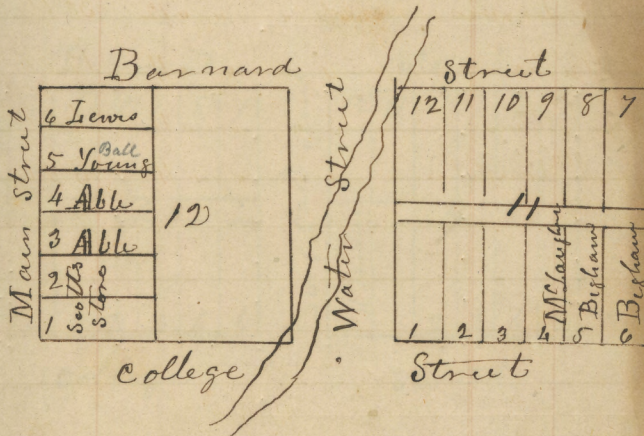 Barnard Street
Main Street
6 Lewis
5 Young Ball
4 Able
3 Able
2
1
Scotts Store
12
Water Street
12 11 10 9 8 7
11
1 2 3 4 5 6
McLaughlin
Bigham
Bigham
College Street